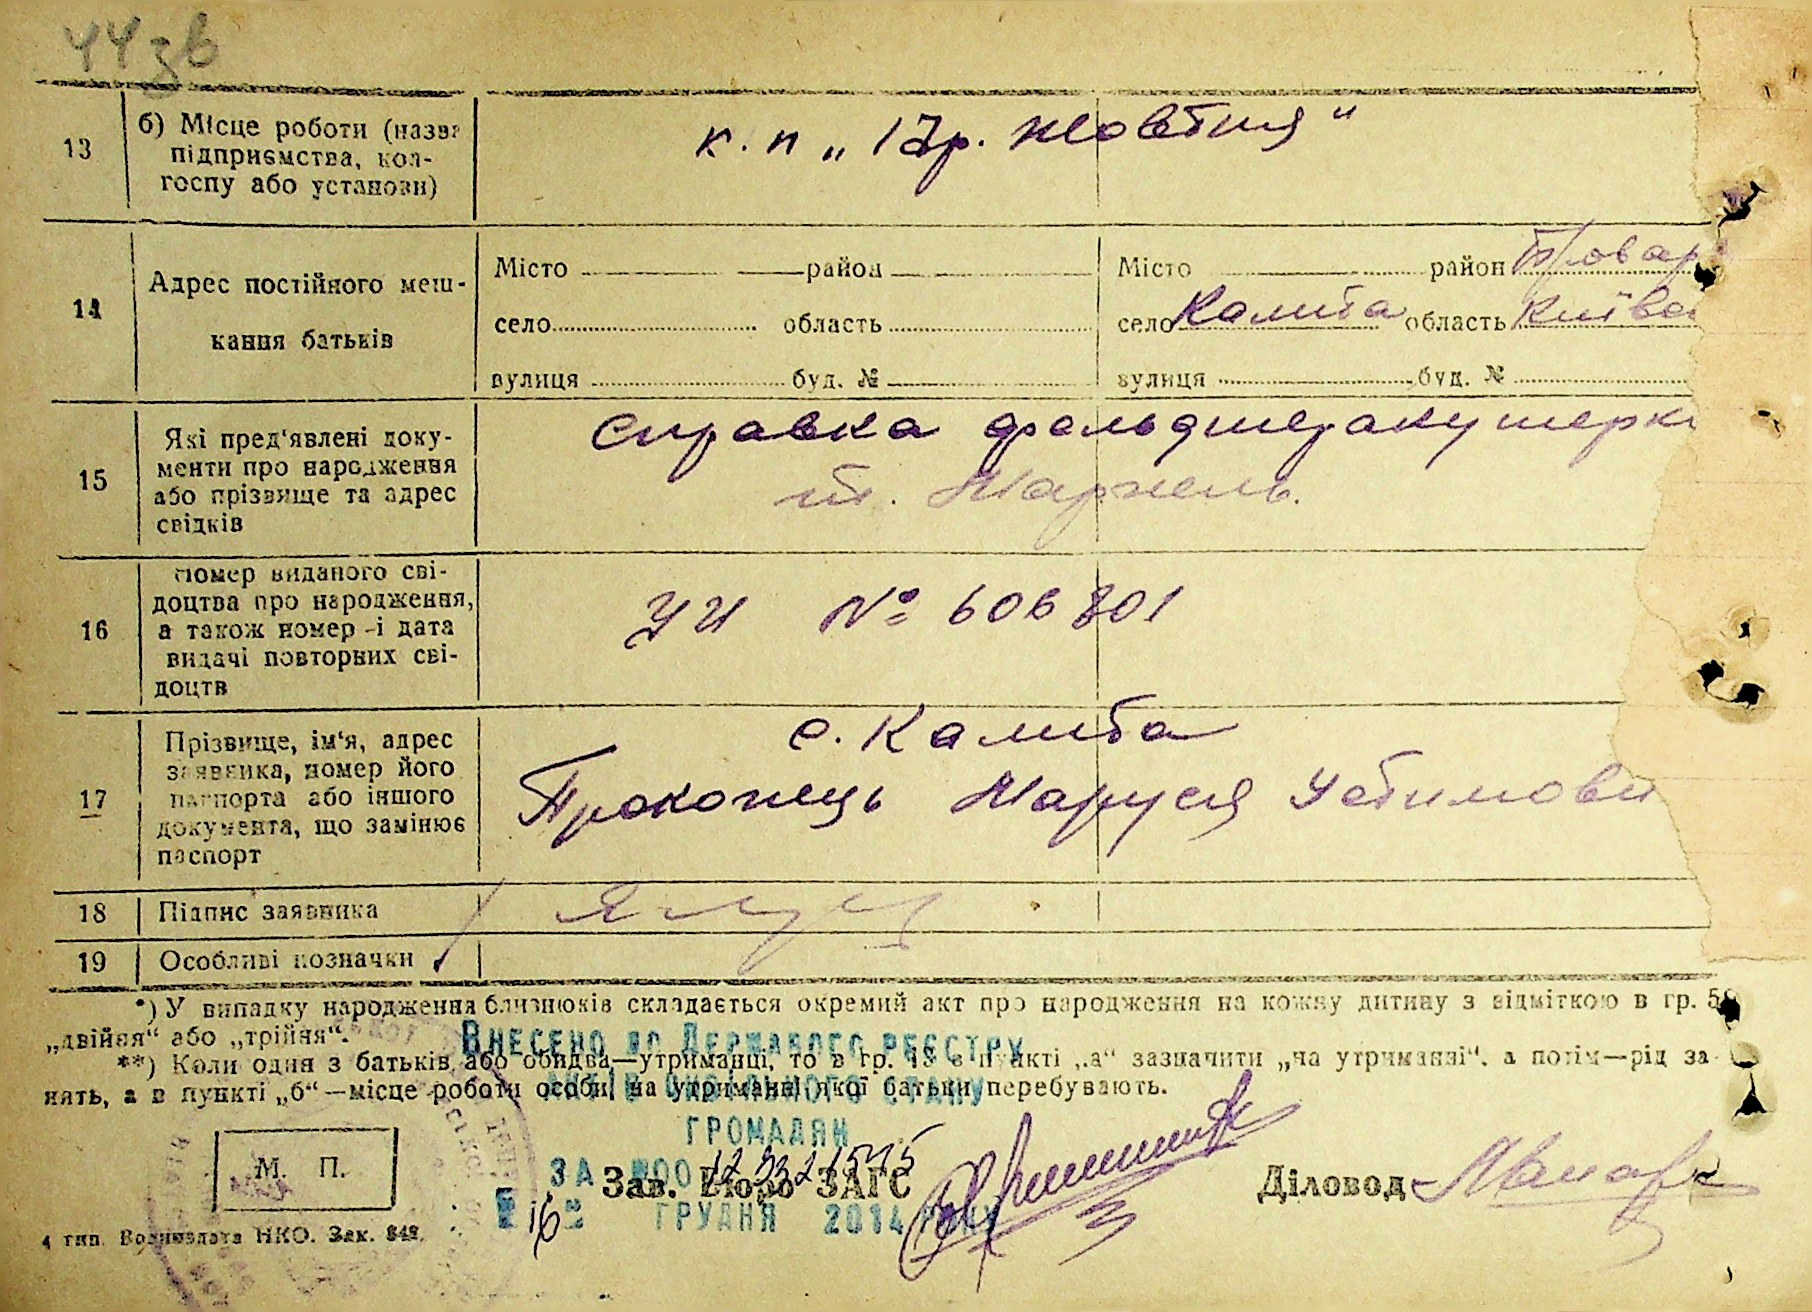 44зв
13
б) Місце роботи (назва
підприємства, кол-
госпу або установи)
к. п „17 р. Жовтня“
14
Адрес постійного меш-
кання батьків
Місто район
село область
вулиця буд. №
Місто район Бровар
село Калита область Київс
вулиця буд. №
15
Які пред‘явлені доку-
менти про народження
або прізвище та адрес
свідків
справка фельдшеракушерк
т.
16
Номер виданого сві-
доцтва про народження,
а також номер і дата
видачі повторних сві-
доцтв
УИ № 606801
17
Прізвище, ім‘я, адрес
заявника, номер його
паспорта або іншого
документа, що замінює
паспорт
с. Калита
Прокопець Маруся Устимовн
18
Підпис заявника
19
Особливі позначки
*) У випадку народження близнюків складається окремий акт про народження на кожну дитину з відміткою в гр. 5
„двійня“ або „трійня“.
**) Коли один з батьків або обидва—утриманці, то в гр. 13 в пункті „а“ зазначити „на утриманні“, а потім—рід за
нять, а в пункті „б“—місце роботи особи, на утриманні якої батьки перебувають.
Внесено до Державного реєстру
актів цивільного стану
громадян
за №00
16 грудня 2014 року
М. П.
Зав. Бюро ЗАГС
Діловод
4 тип. Воениздата НКО. Зак. 848.